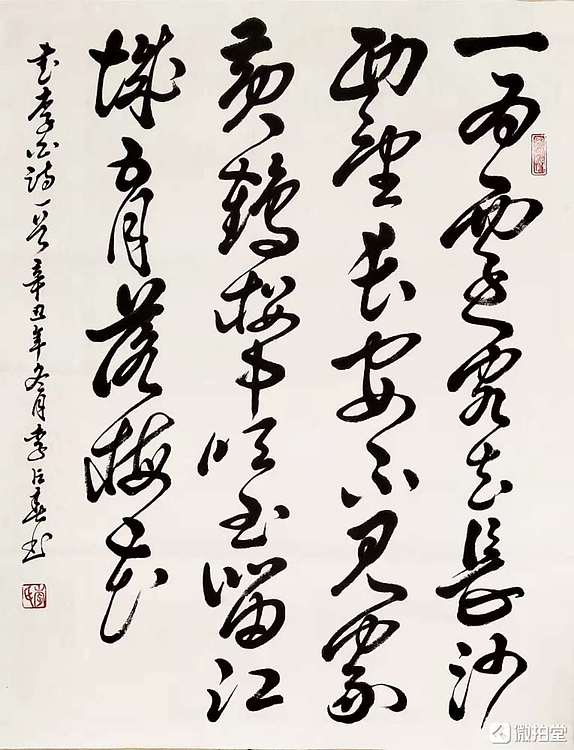 一为遷客去長沙
西望長安不見家
黄鶴楼中吹玉笛江
城五月落梅花
书李白诗一首 辛丑年冬月李占春书
微拍堂